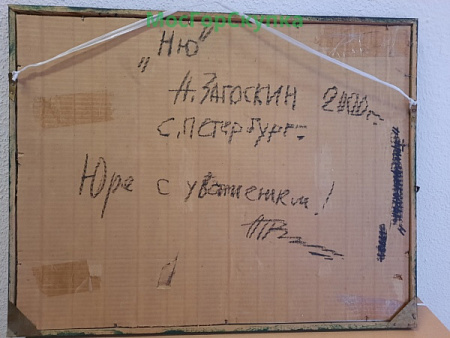 МосГорСкупка
„Ню“
А. Загоскин 2000г.
С. Петербург.
Юре с уважением!